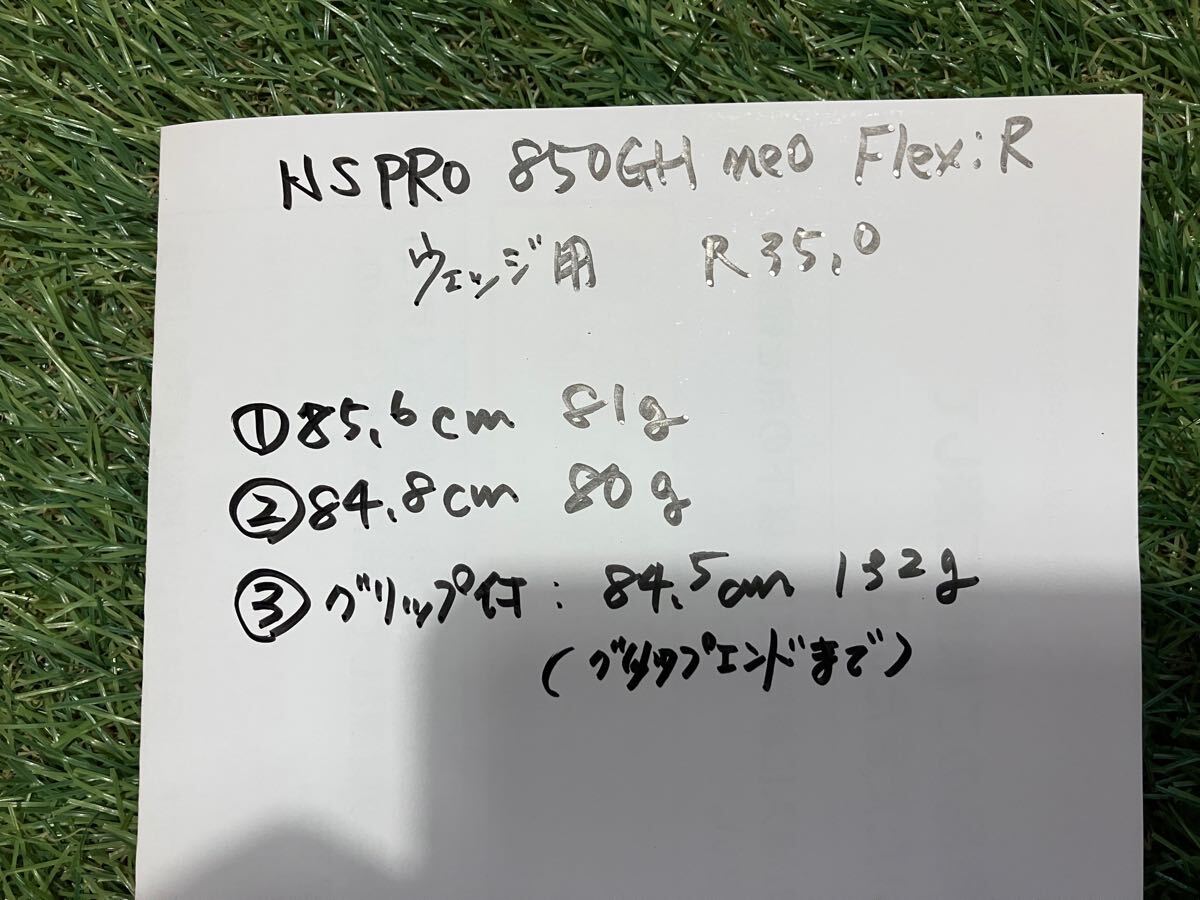 NSPRO 850GH neo Flex:R
ウェッジ用 R35,0
①85,6cm 81g
②84,8cm 80g
③グリップ付: 84,5cm 132g
(グリップエンドまで)